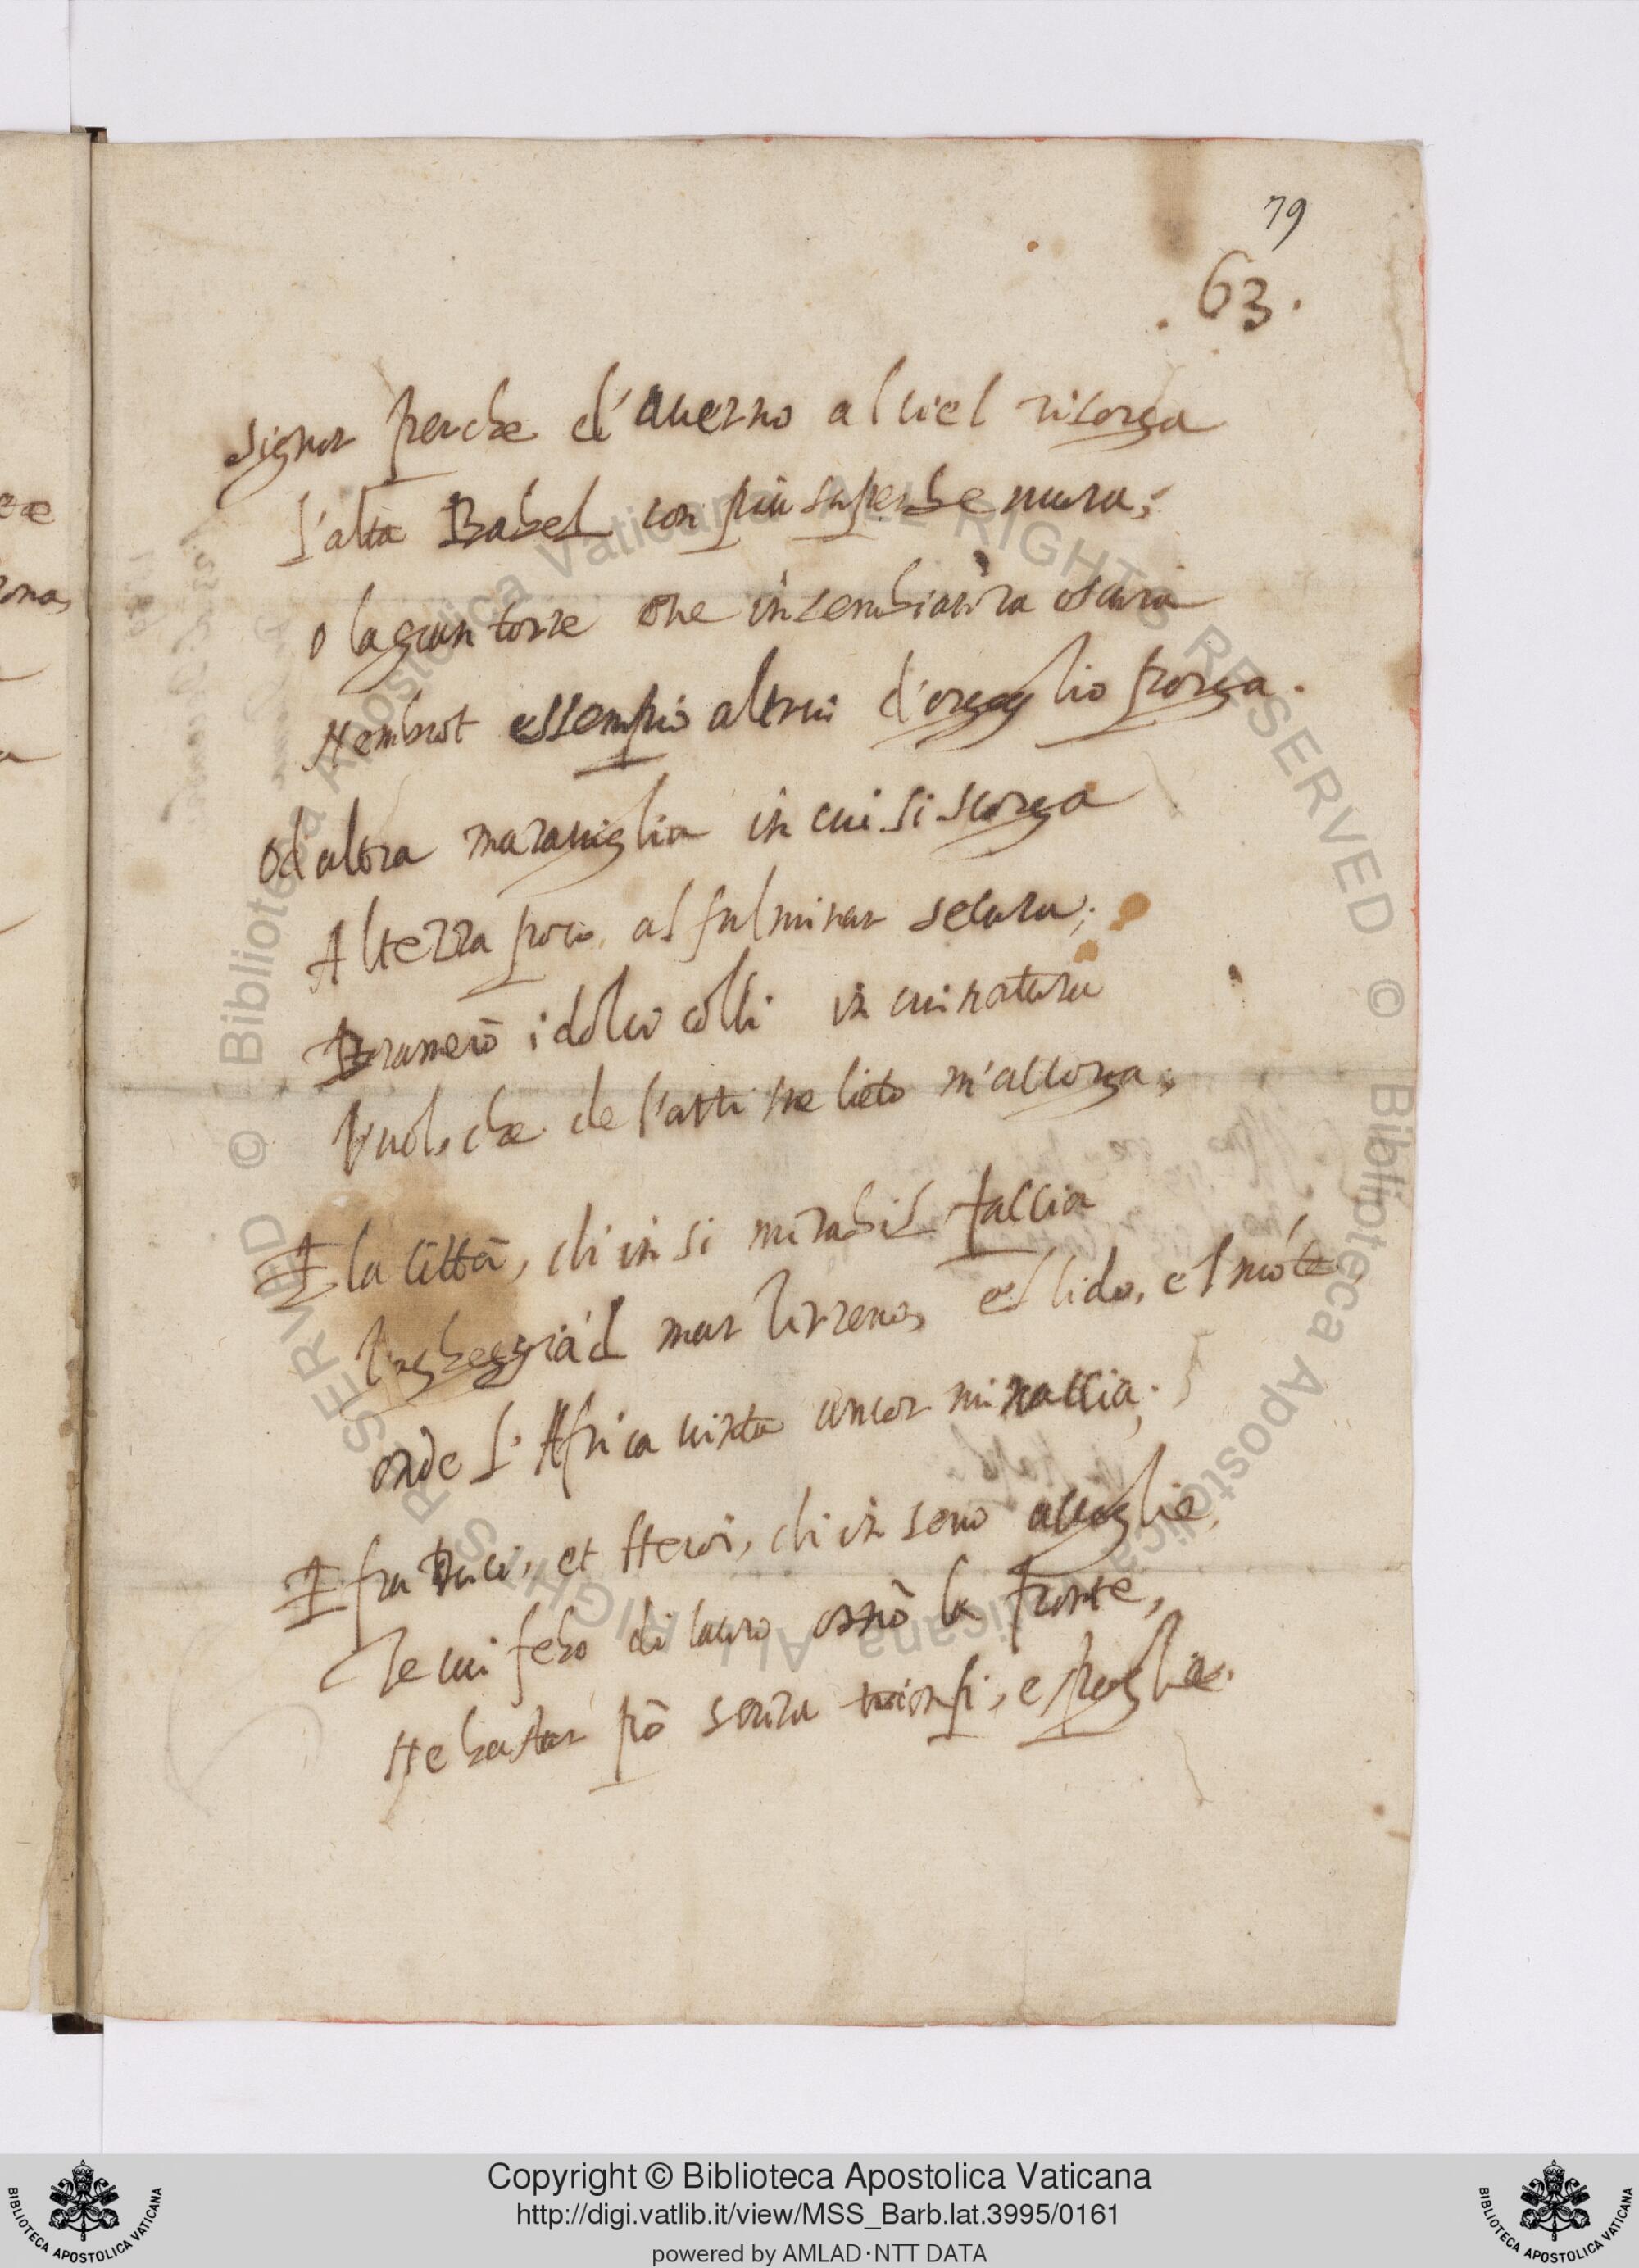 79
.63.
Signor perche d'averno al ciel risorga
l'alta Babel con piu superbe mura;
o la gran torre che in sembianza oscura
Nembrot essempio altrui d'orgoglio porga.
Od altra maraviglia in cui si scorga
Altezza poco al fulminar secura;
Bramerò i dolci colli in cui natura
Vuol, che de l'arti sue lieto m'accorga;
E la città, ch'in si mirabil faccia
Vagheggia'l mar Tirreno, e'l lido, e'l mõte
onde l'Africa vinta ancor minaccia;
E fra Duci, et Heroi, ch'in seno accoglie,
Te cui febo di lauro ornò la fronte,
Ne bastar pò senza trionfi, e spoglie.
© Biblioteca Apostolica Vaticana ALL RIGHTS RESERVED © Biblioteca Apostolica Vaticana ALL RIGHTS RESERVED
Copyright © Biblioteca Apostolica Vaticana
http://digi.vatlib.it/view/MSS_Barb.lat.3995/0161
powered by AMLAD·NTT DATA
BIBLIOTECA APOSTOLICA VATICANA
BIBLIOTECA APOSTOLICA VATICANA